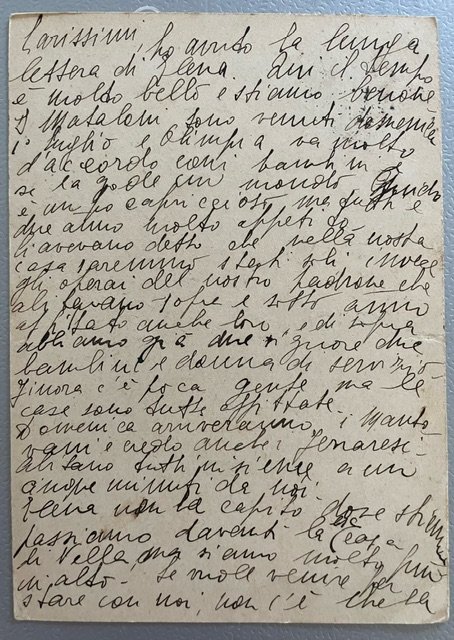 Carissimi, ho avuto la lunga
lettera di Lena. Qui il tempo
è molto bello e stiamo benone
I Mataloni sono venuti domenica
1° luglio e Olimpia va molto
d'accordo coni bambini
se la gode un mondo. Guido
è un po capriccioso, ma tutti e
due anno molto appetito.
Ci avevano detto che nella nostra
casa saremmo stati soli invece
gli operai del nostro padrone che
abitavano sopra e sotto anno
affittato anche loro, e di sopra
abbiamo già due signore due
bambini e donna di servizio
Finora c'è poca gente ma le
case sono tutte affittate.
Domenica arriveranno i Manto
vani e credo anche i
abitano tutti insieme a un
cinque minuti da noi.
Lena non la capito dove stiamo
passiamo davanti la casa
di Nella, ma siamo molto più
in alto. Se vuole venire per
stare con noi, non c'è che la